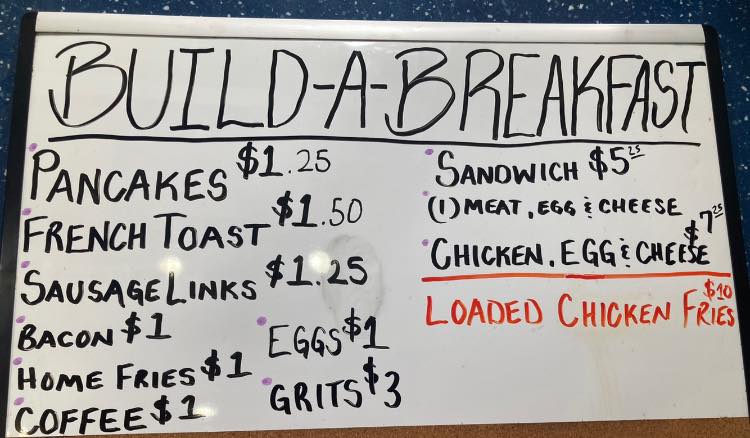 BUILD-A-BREAKFAST
PANCAKES $1.25
FRENCH TOAST $1.50
SAUSAGE LINKS $1.25
BACON $1
HOME FRIES $1
COFFEE $1
EGGS $1
GRITS $3
SANDWICH $5.25
(1) MEAT, EGG & CHEESE
CHICKEN, EGG & CHEESE $7.25
LOADED CHICKEN FRIES $10